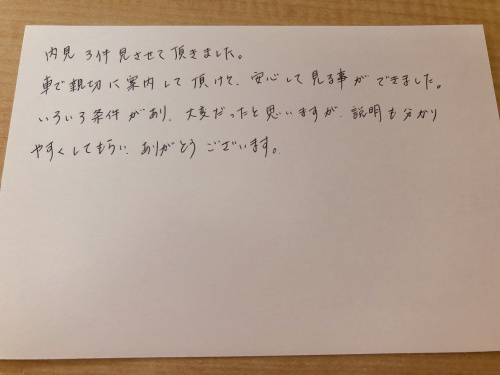 内見 3件 見させて頂きました。
車で親切に案内して頂けて、安心して見る事ができました。
いろいろ条件があり、大変だったと思いますが、説明も分かり
やすくしてもらい、ありがとうございます。